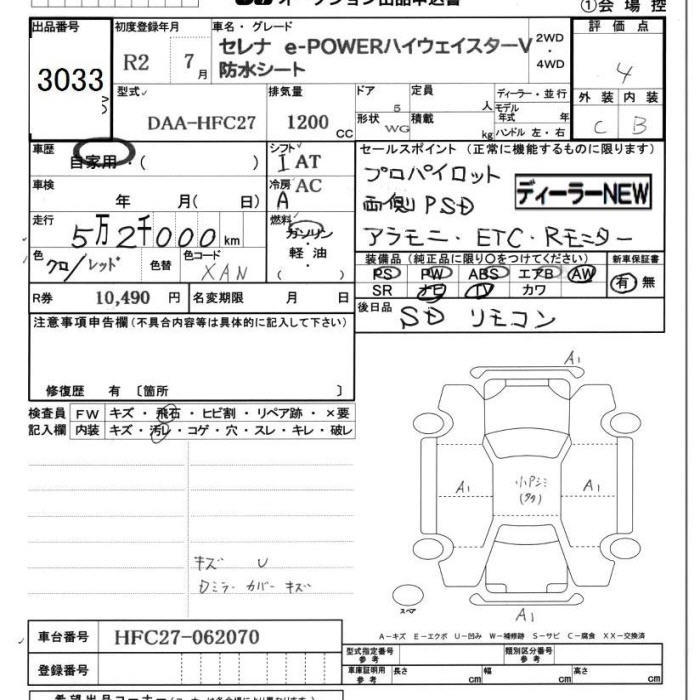 オークション出品申込書
①会場控
出品番号 3033
初度登録年月 R2 7月
車名・グレード セレナ e-POWERハイウェイスターV
防水シート
2WD
・
4WD
評価点 4
外装 内装
C B
型式 DAA-HFC27
排気量 1200 CC
ドア 5
定員 人
形状 WG
積載 kg
ディーラー・並行
モデル年式 年
ハンドル 左・右
車歴 自家用・( )
シフト I AT
車検 年 月( 日)
冷房 AC A
走行 5万2千000km
燃料 ガソリン
軽・油
( )
色 クロ/レッド 色替 色コード XAN
R券 10,490 円 名変期限 月 日
セールスポイント(正常に機能するものに限ります)
プロパイロット
両側PSD
ディーラーNEW
アラモニ・ETC・Rモニター
装備品(純正品に限り○をつけてください) 新車保証書
PS PW ABS エアB AW
SR ナビ TV カワ
有 無
後日品 SD リモコン
注意事項申告欄(不具合内容等は具体的に記入して下さい)
修復歴 有 〔箇所 〕
検査員 FW キズ・飛石・ヒビ割・リペア跡・×要
記入欄 内装 キズ・汚レ・コゲ・穴・スレ・キレ・破レ
A1
A1
A1
小Pシミ
キズ U
Dミラーカバーキズ
スペア
A1
A-キズ E-エクボ U-凹み W-補修跡 S-サビ C-腐食 XX-交換済
車台番号 HFC27-062070
登録番号
型式指定番号 参考
類別区分番号 参考
車庫証明用 参考 長さ cm 幅 cm 高さ cm
希望出品コーナー